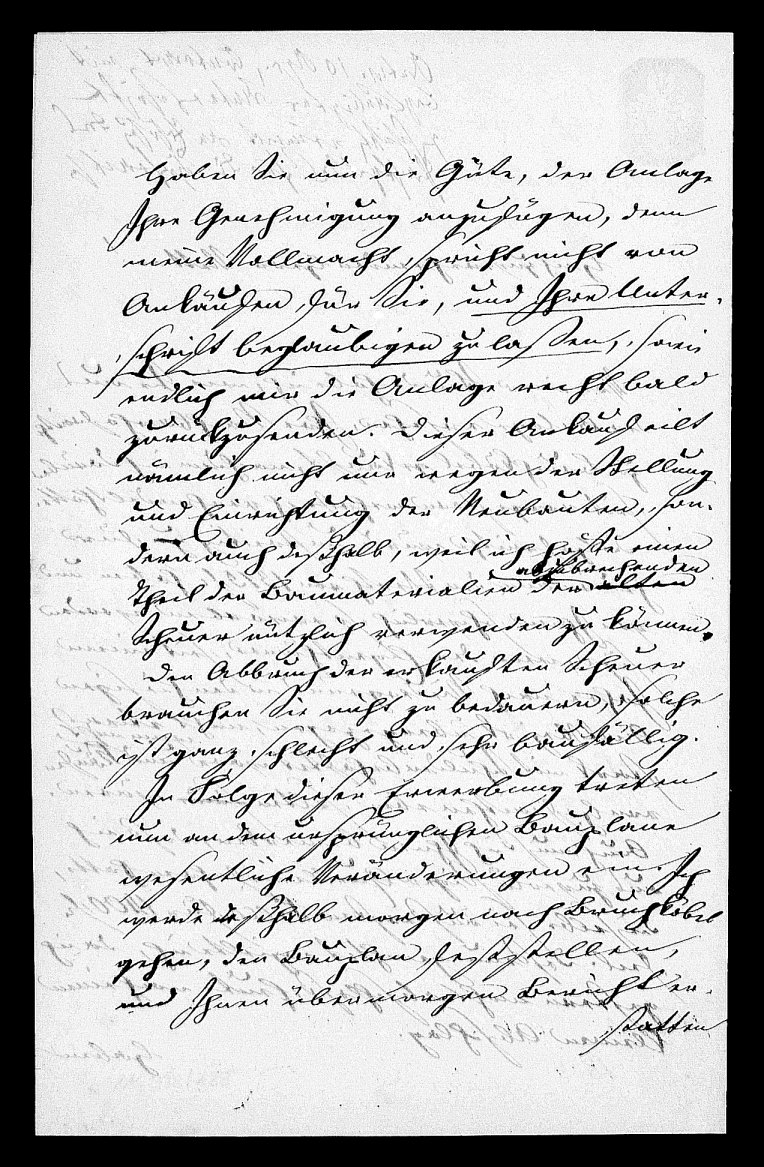 Haben Sie nun die Güte, der Anlage
Ihre Genehmigung anzufügen, denn
meine Vollmacht spricht nicht von
Ankäufen für Sie, und Ihre Unter-
schrift beglaubigen zu laßen, sowie
endlich mir die Anlage recht bald
zurückzusenden. Dieser Ankauf eilt
nämlich nicht nur wegen der Stellung
und Einrichtung der Neubauten, son-
dern auch deßhalb, weil ich hoffe einen
abzubrechenden
Theil der Baumaterialien der alten
Scheuer nützlich verwenden zu können.
Den Abbruch der erkauften Scheuer
brauchen Sie nicht zu bedauern, solche
ist ganz schlecht und sehr baufällig.
In Folge dieser Erwerbung treten
nun an dem ursprünglichen Bauplane
wesentliche Veränderungen ein. Ich
werde deßhalb morgen nach Bruchköbel
gehen, den Bauplan feststellen,
und Ihnen übermorgen Bericht er-
statten